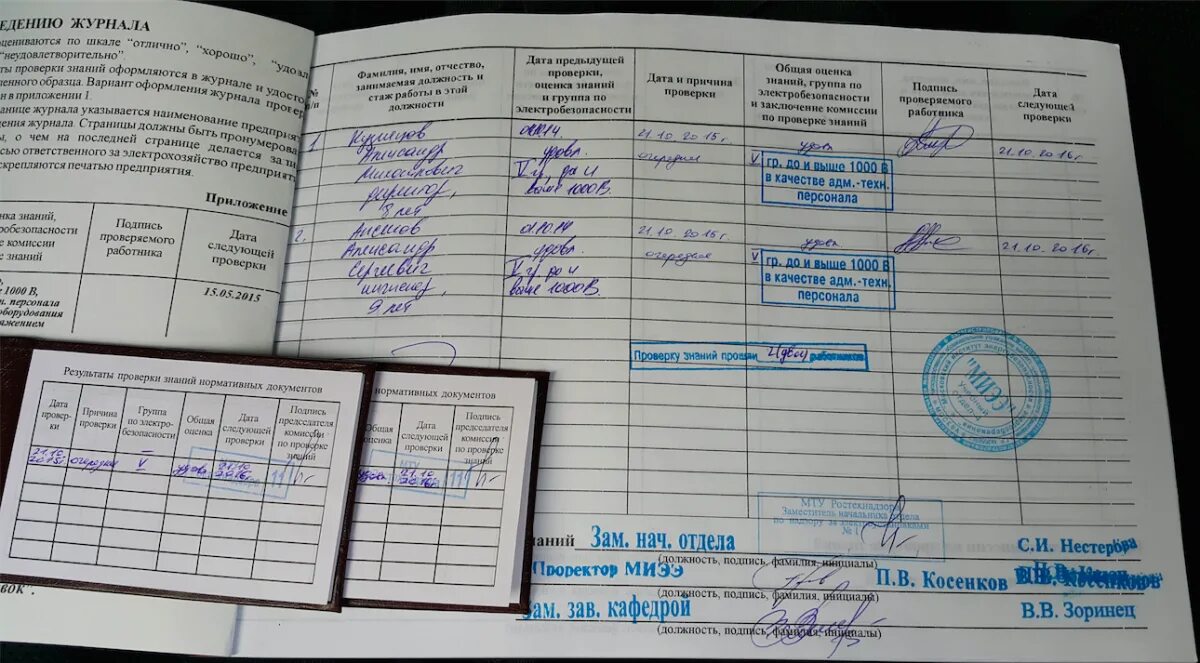 ЕДЕНИЮ ЖУРНАЛА
оцениваются по шкале “отлично”, “хорошо”, “удовл
“неудовлетворительно”.
ты проверки знаний оформляются в журнале и удосто
ленного образца. Вариант оформления журнала провер
н в приложении 1.
анице журнала указывается наименование предприят
дения журнала. Страницы должны быть пронумерова
ы, о чем на последней странице делается за
сью ответственного за электрохозяйство предприят
скрепляются печатью предприятия.
Приложение
нка знаний,
робезопасности
е комиссии
е знаний
Подпись
проверяемого
работника
Дата
следующей
проверки
1000 В,
н. персонала
оборудования
ряжением
15.05.2015
№
п/п
Фамилия, имя, отчество,
занимаемая должность и
стаж работы в этой
должности
Дата предыдущей
проверки,
оценка знаний
и группа по
электробезопасности
Дата и причина
проверки
Общая оценка
знаний, группа по
электробезопасности
и заключение комиссии
по проверке знаний
Подпись
проверяемого
работника
Дата
следующей
проверки
1.
Кузнецов
Александр
Михайлович
директор,
8 лет
удовл.
V гр. до и
выше 1000 В.
21.10.2015г.
очередная
удовл.
V гр. до и выше 1000 В
в качестве адм.-техн.
персонала
21.10.2016г.
2.
Анисимов
Александр
Сергеевич
инженер,
9 лет
01.10.14
удовл.
V гр. до и
выше 1000 В.
21.10.2015г.
очередная
удовл.
V гр. до и выше 1000 В
в качестве адм.-техн.
персонала
21.10.2016г.
Проверку знаний прошли 2(два) работников
"МИЭЭ"
Учебный
отдел
МТУ Ростехнадзора
Заместитель начальника отдела
по надзору за электроустановками
наний Зам. нач. отдела
С.И. Нестерова
(должность, подпись, фамилия, инициалы)
Проректор МИЭЭ
П.В. Косенков
(должность, подпись, фамилия, инициалы)
Зам. зав. кафедрой
В.В. Зоринец
(должность, подпись, фамилия, инициалы)
Результаты проверки знаний нормативных документов
Дата
провер-
ки
Причина
проверки
Группа
по электро-
безопасности
Общая
оценка
Дата
следующей
проверки
Подпись
председателя
комиссии
по проверке
знаний
21.10
2015г.
очередная
V
удовл.
21.10
2016г.
нормативных документов
Общая
оценка
Дата
следующей
проверки
Подпись
председателя
комиссии
по проверке
знаний
удовл.
МТУ
21.10
2016г.
вок".